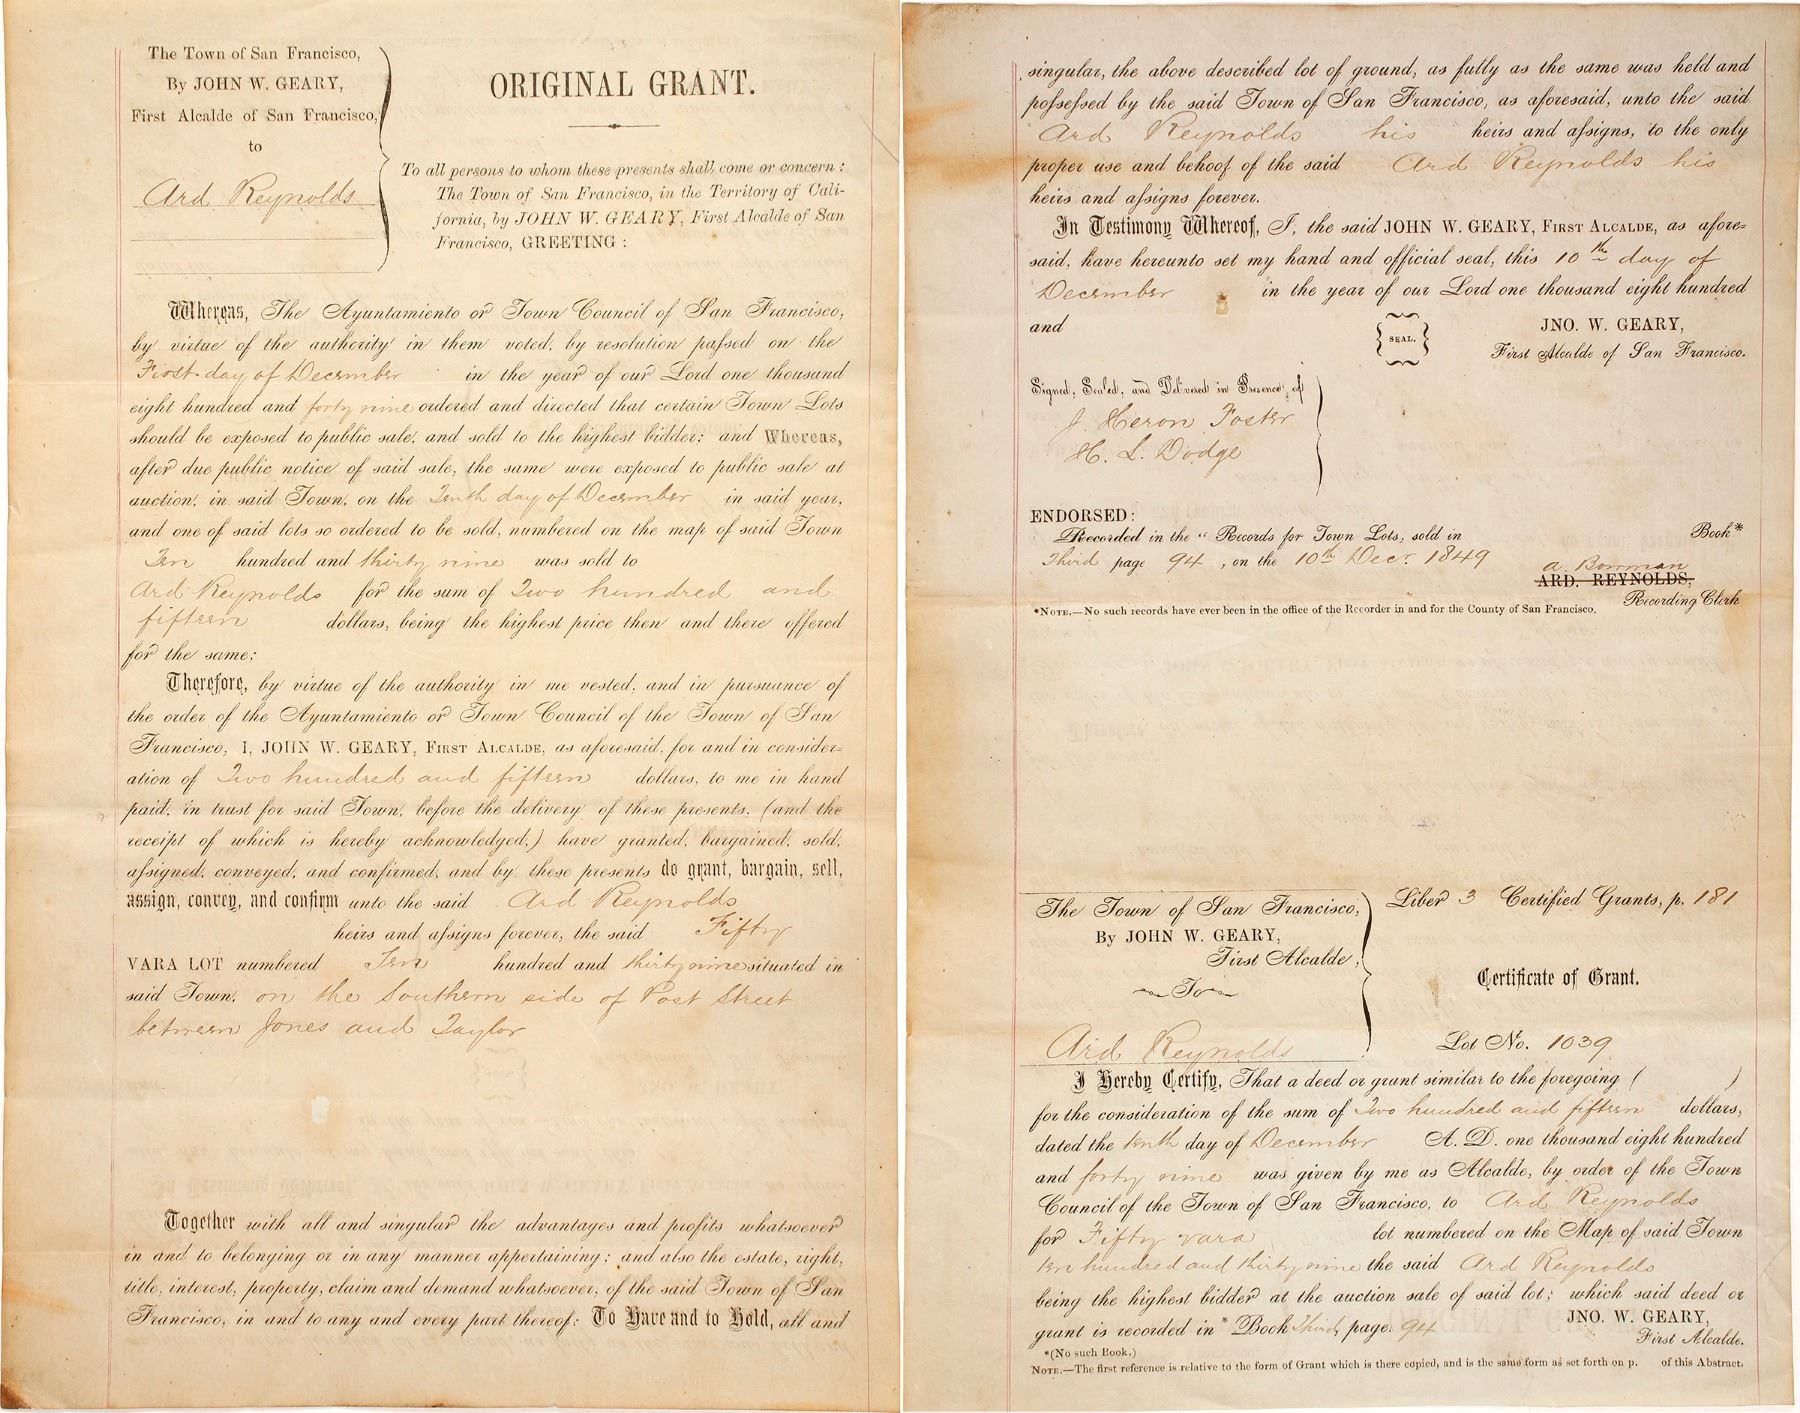 The Town of San Francisco,
By JOHN W. GEARY,
First Alcalde of San Francisco,
to
Ard Reynolds
ORIGINAL GRANT.
To all persons to whom these presents shall come or concern:
The Town of San Francisco, in the Territory of Cali-
fornia, by JOHN W. GEARY, First Alcalde of San
Francisco, GREETING:
Whereas, The Ayuntamiento or Town Council of San Francisco,
by virtue of the authority in them voted, by resolution passed on the
First day of December in the year of our Lord one thousand
eight hundred and forty nine ordered and directed that certain Town Lots
should be exposed to public sale, and sold to the highest bidder; and Whereas,
after due public notice of said sale, the same were exposed to public sale at
auction, in said Town, on the Tenth day of December in said year,
and one of said lots so ordered to be sold, numbered on the map of said Town
Ten hundred and thirty nine was sold to
Ard Reynolds for the sum of Two hundred and
fifteen dollars, being the highest price then and there offered
for the same:
Therefore, by virtue of the authority in me vested, and in pursuance of
the order of the Ayuntamiento or Town Council of the Town of San
Francisco, I, JOHN W. GEARY, FIRST ALCALDE, as aforesaid, for and in consider=
ation of Two hundred and fifteen dollars, to me in hand
paid, in trust for said Town, before the delivery of these presents, (and the
receipt of which is hereby acknowledged,) have granted, bargained, sold,
assigned, conveyed, and confirmed, and by these presents do grant, bargain, sell,
assign, convey, and confirm unto the said Ard Reynolds
heirs and assigns forever, the said Fifty
VARA LOT numbered Ten hundred and thirty nine situated in
said Town, on the Southern side of Post Street
between Jones and Taylor
Together with all and singular the advantages and profits whatsoever
in and to belonging or in any manner appertaining; and also the estate, right,
title, interest, property, claim and demand whatsoever, of the said Town of San
Francisco, in and to any and every part thereof: To Have and to Hold, all and
singular, the above described lot of ground, as fully as the same was held and
possessed by the said Town of San Francisco, as aforesaid, unto the said
Ard Reynolds his heirs and assigns, to the only
proper use and behoof of the said Ard Reynolds his
heirs and assigns forever.
In Testimony Whereof, I, the said JOHN W. GEARY, FIRST ALCALDE, as afore=
said, have hereunto set my hand and official seal, this 10th day of
December in the year of our Lord one thousand eight hundred
and
SEAL.
JNO. W. GEARY,
First Alcalde of San Francisco.
Signed, Sealed, and Delivered in Presence of
J. Heron Foster
H. L. Dodge
ENDORSED:
Recorded in the "Records for Town Lots, sold in Book*
Third page 94, on the 10th Dec. 1849
A. Bowman
ARD. REYNOLDS,
Recording Clerk
*NOTE.—No such records have ever been in the office of the Recorder in and for the County of San Francisco.
The Town of San Francisco,
By JOHN W. GEARY,
First Alcalde,
To
Ard Reynolds
Liber 3 Certified Grants, p. 181
Certificate of Grant.
Lot No. 1039
I Hereby Certify, That a deed or grant similar to the foregoing ( )
for the consideration of the sum of Two hundred and fifteen dollars,
dated the tenth day of December A. D. one thousand eight hundred
and forty nine was given by me as Alcalde, by order of the Town
Council of the Town of San Francisco, to Ard Reynolds
for Fifty vara lot numbered on the Map of said Town
ten hundred and thirty nine the said Ard Reynolds
being the highest bidder at the auction sale of said lot; which said deed or
grant is recorded in* Book third, page. 94
JNO. W. GEARY,
First Alcalde.
*(No such Book.)
NOTE.—The first reference is relative to the form of Grant which is there copied, and is the same form as set forth on p. of this Abstract.